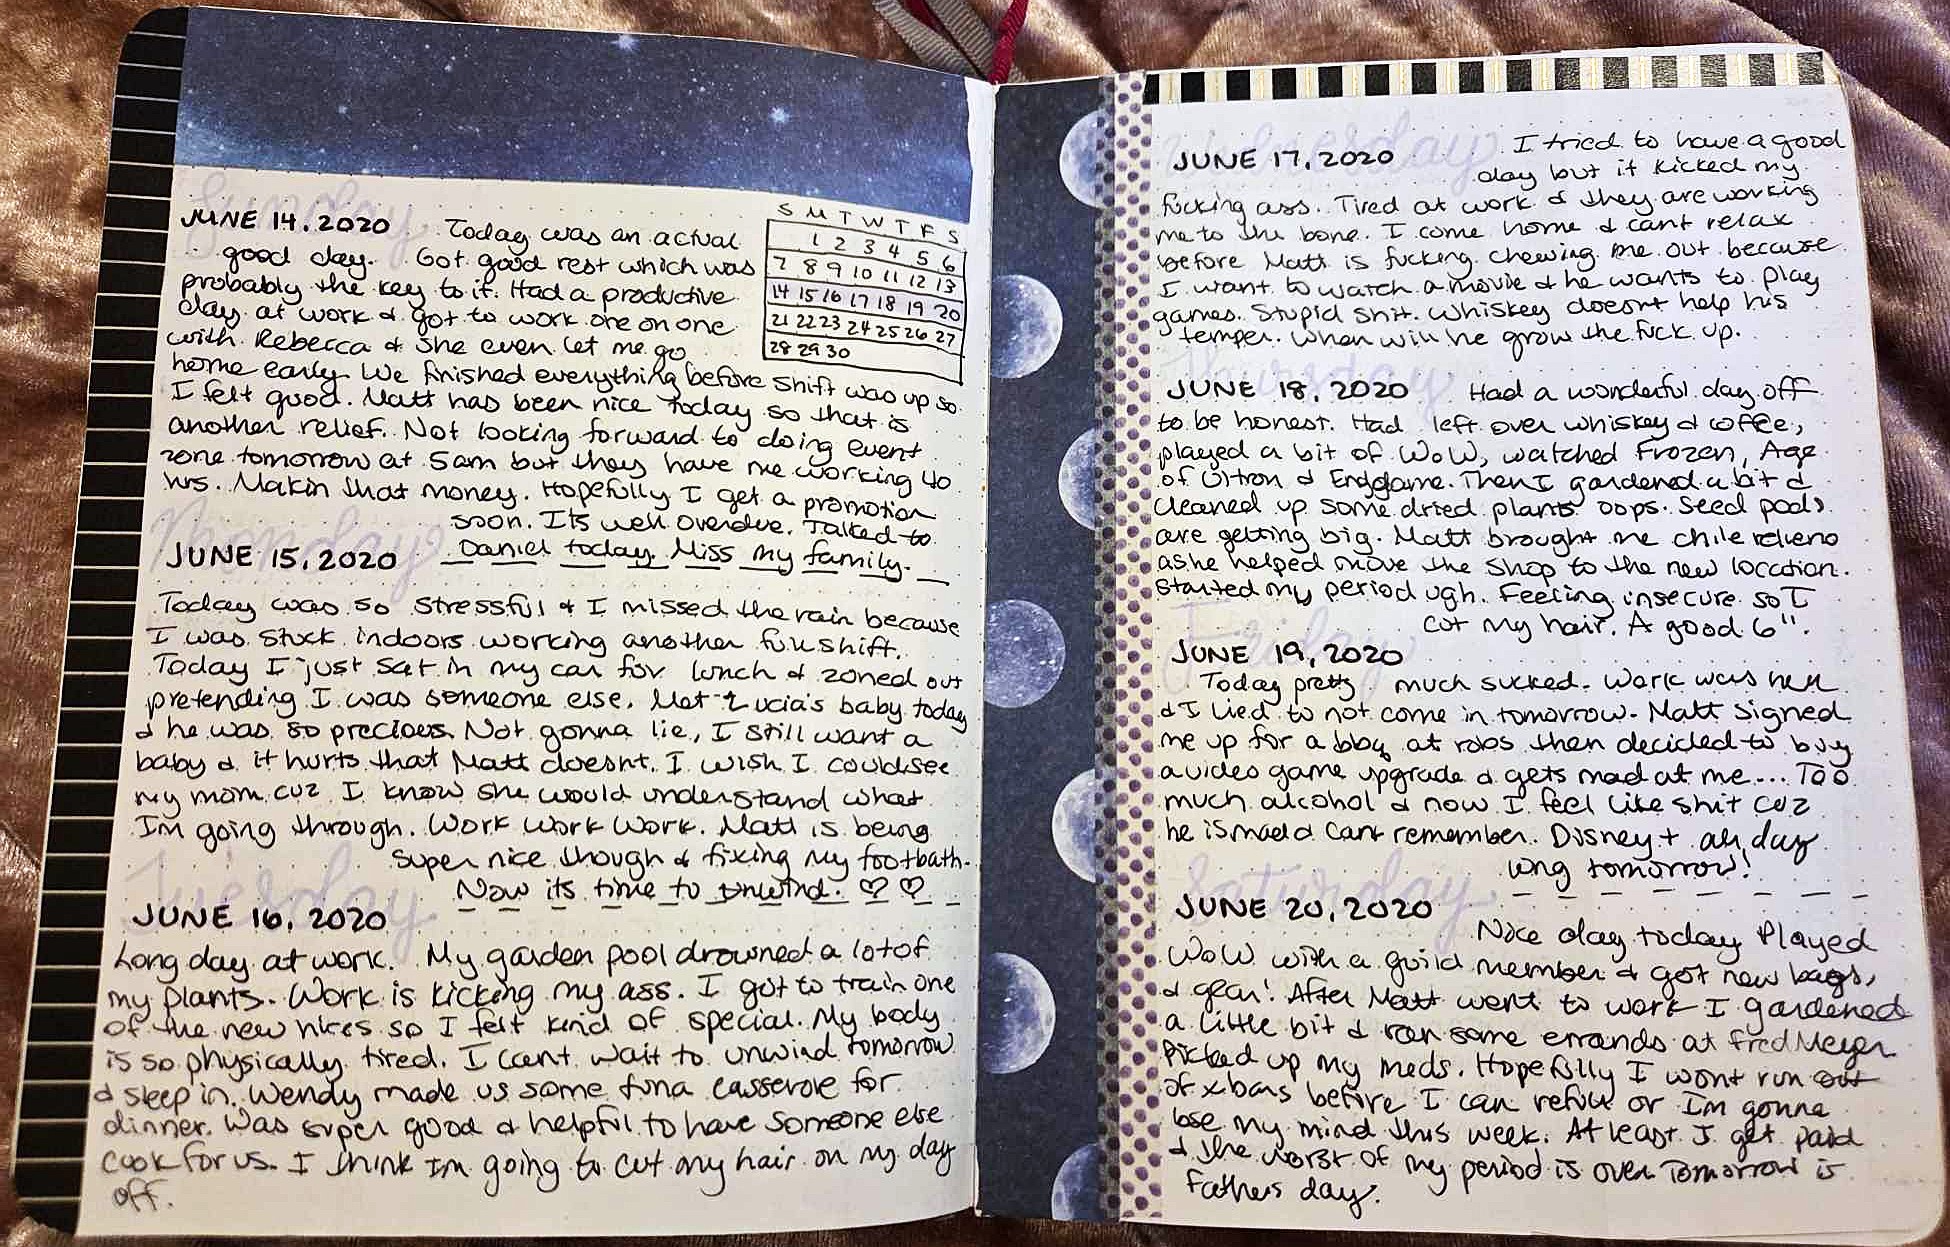 Sunday
JUNE 14, 2020 Today was an actual
good day. Got good rest which was
probably the key to it. Had a productive
day at work & got to work one on one
with Rebecca & she even let me go
home early. We finished everything before shift was up so
I felt good. Matt has been nice today so that is
another relief. Not looking forward to doing event
zone tomorrow at 5am but they have me working 40
hrs. Makin that money. Hopefully I get a promotion
soon. Its well overdue. Talked to
Daniel today. Miss my family.
S M T W T F S
1 2 3 4 5 6
7 8 9 10 11 12 13
14 15 16 17 18 19 20
21 22 23 24 25 26 27
28 29 30
Monday
JUNE 15, 2020
Today was so stressful & I missed the rain because
I was stuck indoors working another full shift.
Today I just sat in my car for lunch & zoned out
pretending I was someone else. Met Lucia's baby today
& he was so precious. Not gonna lie, I still want a
baby & it hurts that Matt doesnt. I wish I could see
my mom cuz I know she would understand what
Im going through. Work work work. Matt is being
super nice though & fixing my footbath.
Now its time to unwind. ♡ ♡
Tuesday
JUNE 16, 2020
Long day at work. My garden pool drowned a lot of
my plants. Work is kicking my ass. I got to train one
of the new hires so I felt kind of special. My body
is so physically tired. I cant wait to unwind tomorrow
& sleep in. Wendy made us some tuna casserole for
dinner. Was super good & helpful to have someone else
cook for us. I think Im going to cut my hair on my day
off.
Wednesday
JUNE 17, 2020 I tried to have a good
day but it kicked my
fucking ass. Tired at work & they are working
me to the bone. I come home & cant relax
before Matt is fucking chewing me out because
I want to watch a movie & he wants to play
games. Stupid shit. Whiskey doesnt help his
temper. When will he grow the fuck up.
Thursday
JUNE 18, 2020 Had a wonderful day off
to be honest. Had left over whiskey & coffee,
played a bit of WoW, watched Frozen, Age
of Ultron & Endgame. Then I gardened a bit &
cleaned up some dried plants oops. Seed pods
are getting big. Matt brought me chile relleno
as he helped move the shop to the new location.
Started my period ugh. Feeling insecure so I
cut my hair. A good 6".
Friday
JUNE 19, 2020
Today pretty much sucked. Work was hell
& I lied to not come in tomorrow. Matt signed
me up for a bbq at robs then decided to buy
a video game upgrade & gets mad at me... Too
much alcohol & now I feel like shit cuz
he is mad & cant remember. Disney+ all day
long tomorrow!
Saturday
JUNE 20, 2020
Nice day today Played
WoW with a guild member & got new bags,
& gear! After Matt went to work I gardened
a little bit & ran some errands at Fred Meyer
Picked up my meds. Hopefully I wont run out
of xbars before I can refill or Im gonna
lose my mind this week. At least I get paid
& the worst of my period is over Tomorrow is
Fathers day.